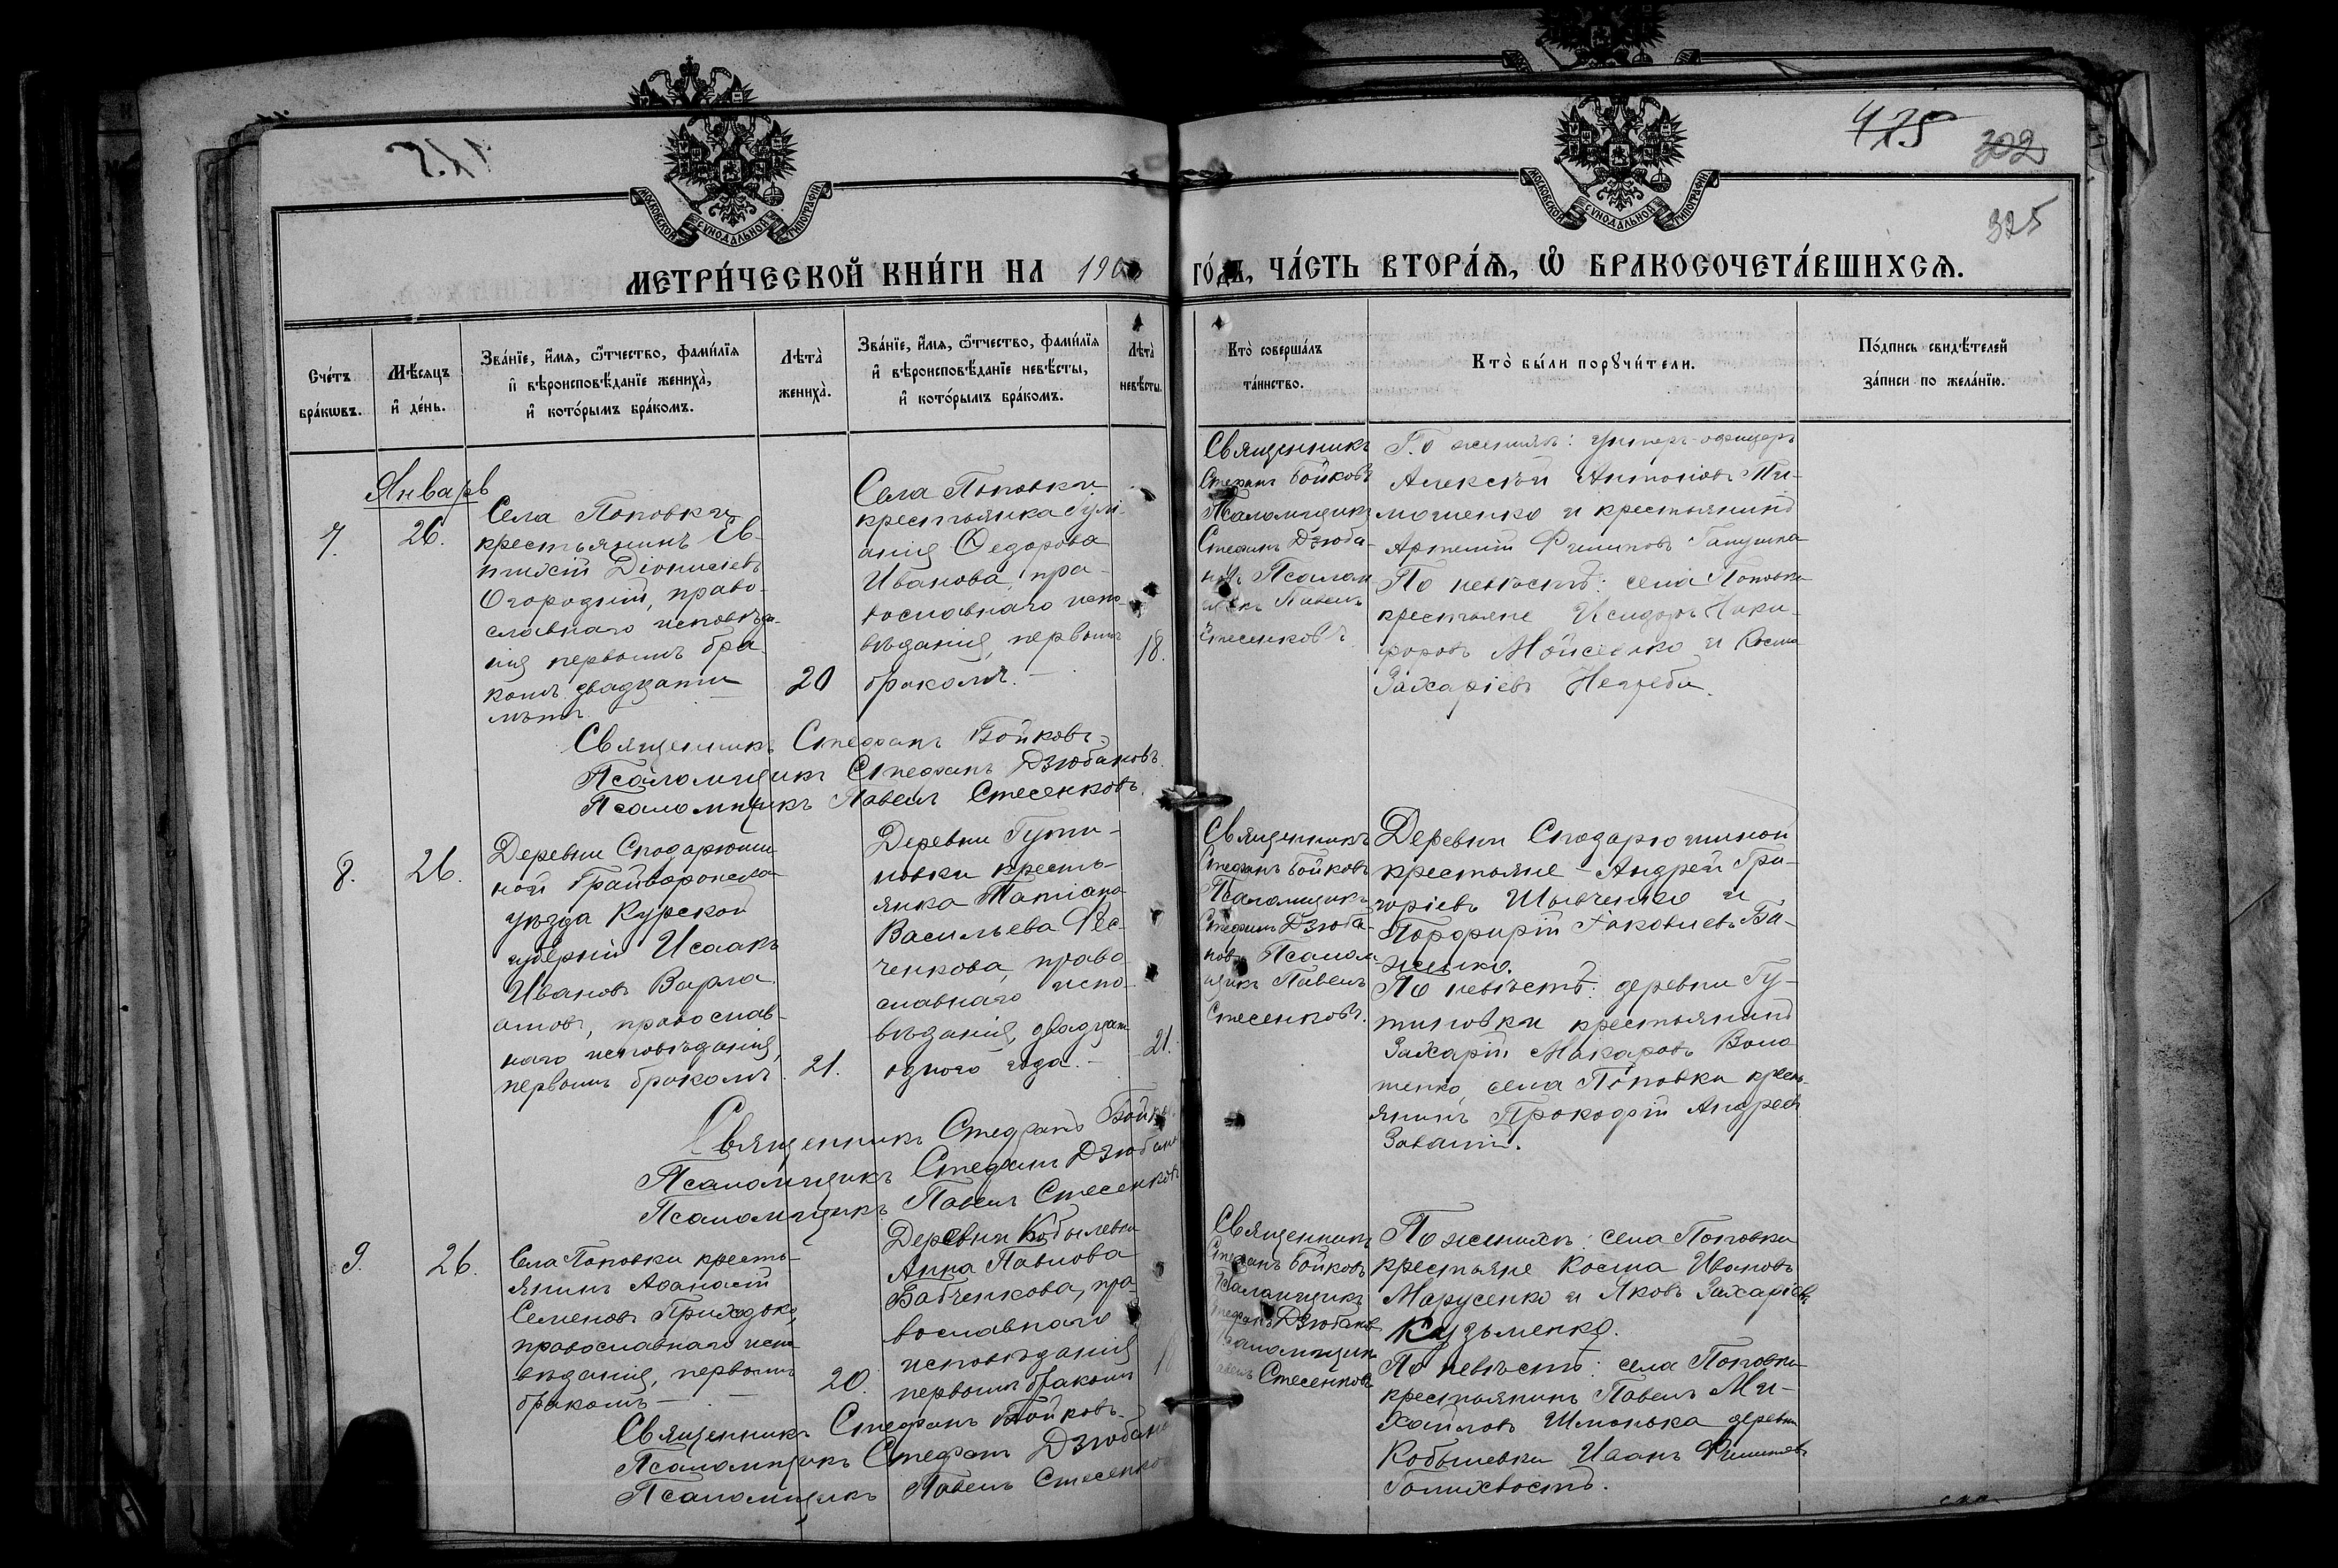 415
302
325
МОСКОВСКОЙ СѴНОДАЛЬНОЙ ТИПОГРАФІИ
МОСКОВСКОЙ СѴНОДАЛЬНОЙ ТИПОГРАФІИ
МЕТРИ́ЧЕСКОЙ КНИ́ГИ НА 190
ГО́ДЪ, ЧА́СТЬ ВТОРА́Ѧ, Ѽ БРАКОСОЧЕТА́ВШИХСѦ.
Сче́тъ
бра́кѡвъ.
Мѣ́сяцъ
и҆ де́нь.
Зва́нїе, и҆́мѧ, ѻ҆́тчество, фами́лїѧ
и҆ вѣроисповѣ́данїе жениха̀,
и҆ кото́рымъ бра́комъ.
Лѣта̀
жениха̀.
Зва́нїе, и҆́мѧ, ѻ҆́тчество, фами́лїѧ
и҆ вѣроисповѣ́данїе невѣ́сты,
и҆ кото́рымъ бра́комъ.
Лѣта̀
невѣ́сты.
Кто̀ соверша́лъ
та́инство.
Кто̀ бы́ли порꙋчи́тели.
По́дпись свидѣ́телей
за́писи по жела́нїю.
Январь
7.
26.
Села Поповки
крестьянинъ Ев-
тихій Діонисіевъ
Огородній, право-
славнаго исповѣда-
нія первымъ бра
комъ двадцати
лѣтъ
20
Села Поповки
крестьянка Іулі-
анія Федорова
Иванова, пра-
вославнаго испо-
вѣданія, первымъ
бракомъ.
18.
Священникъ
Стефанъ Бойковъ
Псаломщикъ
Стефанъ Дзюба-
новъ Псалом
щикъ Павелъ
Стесенковъ
По женихѣ: унтеръ-офицеръ
Алексѣй Антоновъ Ти-
мошенко и крестьянинъ
Артемій Филиповъ
По невѣстѣ: села Поповки
крестьяне Исидоръ Ники-
форовъ Мойсеенко и Косма
Захаріевъ Негреба.
Священникъ Стефанъ Бойковъ.
Псаломщикъ Стефанъ Дзюбановъ.
Псаломщикъ Павелъ Стесенковъ.
8.
26.
Деревни Сподарюши
ной Грайворонска
уѣзда Курской
губерніи Исаакъ
Ивановъ Варла
амовъ, православ-
наго исповѣданія,
первымъ бракомъ
21.
Деревни Гути-
новки кресть-
янка Татіана
Васильева Фес-
ченкова, право
славнаго испо-
вѣданія, двадцати
одного года.
21.
Священникъ
Стефанъ Бойковъ
Псаломщикъ
Стефанъ Дзюба-
новъ Псалом
щикъ Павелъ
Стесенковъ.
Деревни Сподарюшиной
крестьяне - Андрей Гри-
горіевъ Шывченко и
Порфирій Іаковлевъ Ба-
женко.
По невѣстѣ: деревни Гу-
тиновки крестьянинъ
Захарій Макаровъ Воло
шенко села Поповки кресть-
янинъ Прокофій Андреевъ
Завалій.
Священникъ Стефанъ Бойковъ
Псаломщикъ Стефанъ Дзюбано
Псаломщикъ Павелъ Стесенковъ
9.
26.
Села Поповки кресть-
янинъ Афанасій
Семеновъ Приходько,
православнаго испо
вѣданія, первымъ
бракомъ
20.
Деревни Кобылевки
Анна Павлова
Бабченкова, пра-
вославнаго
исповѣданія
первымъ бракомъ
Священникъ
Стефанъ Бойковъ
Псаломщикъ
Стефанъ Дзюбанов
Псаломщикъ
Павелъ Стесенковъ
По женихѣ: села Поповки
крестьяне Косма Ивановъ
Марусенко и Яковъ Захаріевъ
Кузьменко.
По невѣстѣ: села Поповки
крестьянинъ Павелъ Ми-
хайловъ Шмонька деревни
Кобылевки Иванъ Филиповъ
Голихвостъ.
Священникъ Стефанъ Бойковъ.
Псаломщикъ Стефанъ Дзюбано
Псаломщикъ Павелъ Стесенко